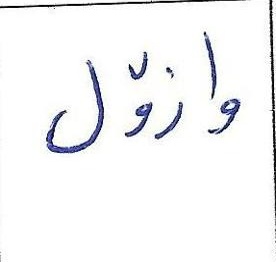 وازۆل